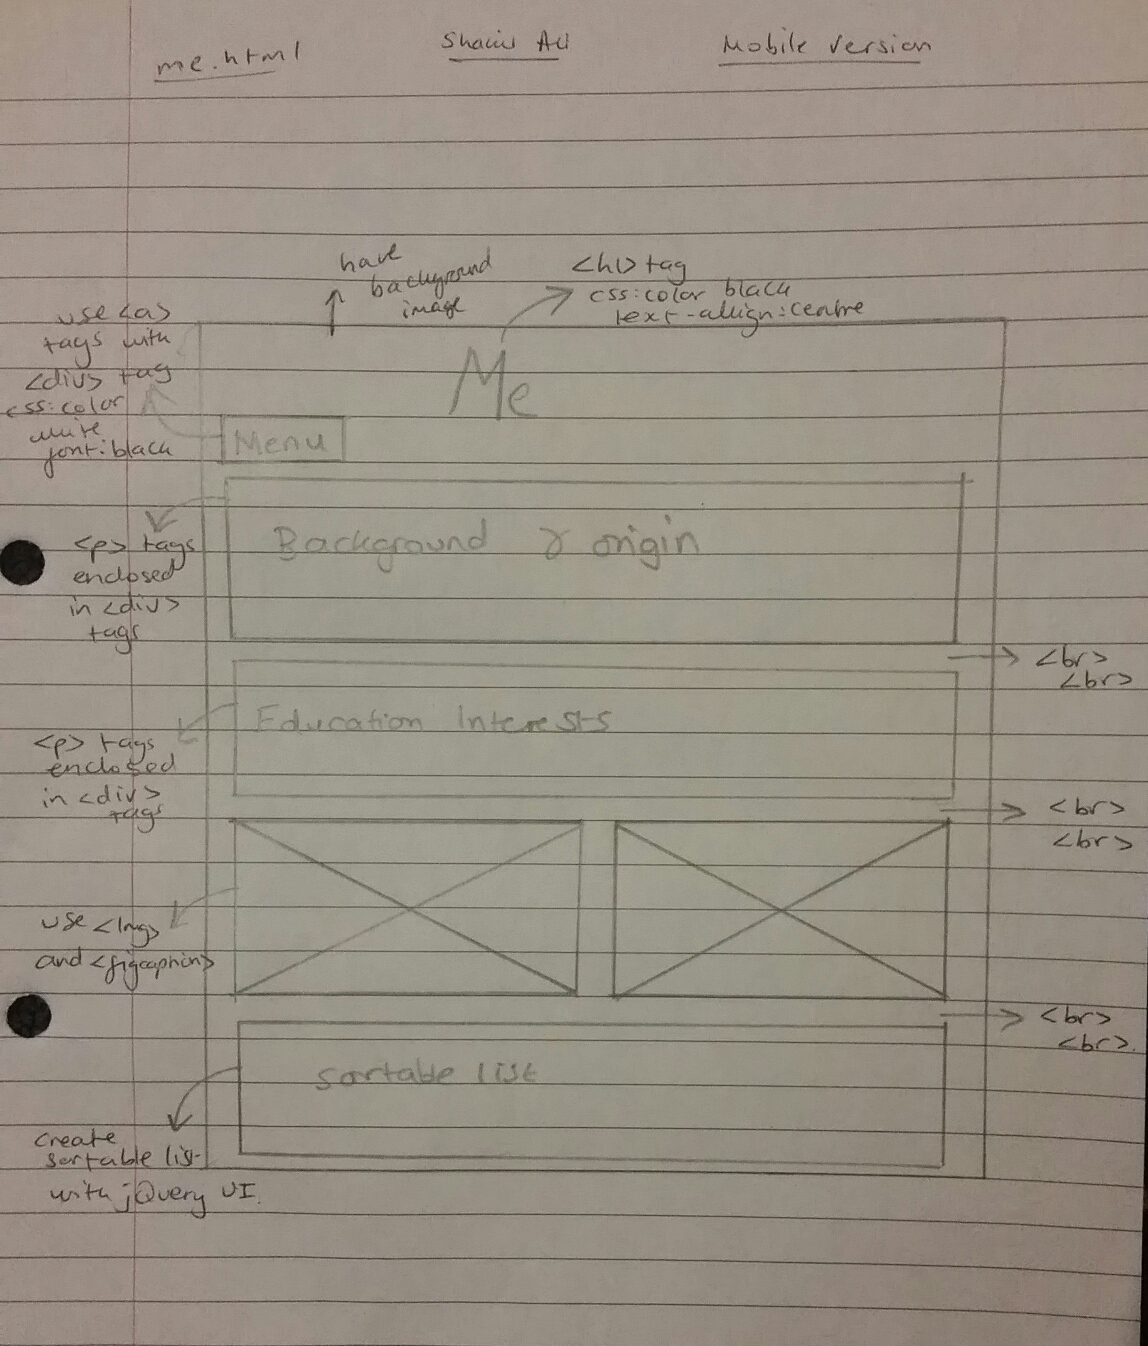 me.html
Ali
Mobile version
have
background
image
<h1> tag
css:color black
text-allign:centre
use <a>
tags with
<div> tag
css:color
white
font:black
Me
Menu
Background & origin
<p> tags
enclosed
in <div>
tags
<br>
<br>
Education Interests
<p> tags
enclosed
in <div>
tags
<br>
<br>
use <img>
and <figcaption>
<br>
<br>
Sortable list
create
sortable list
with jQuery UI.